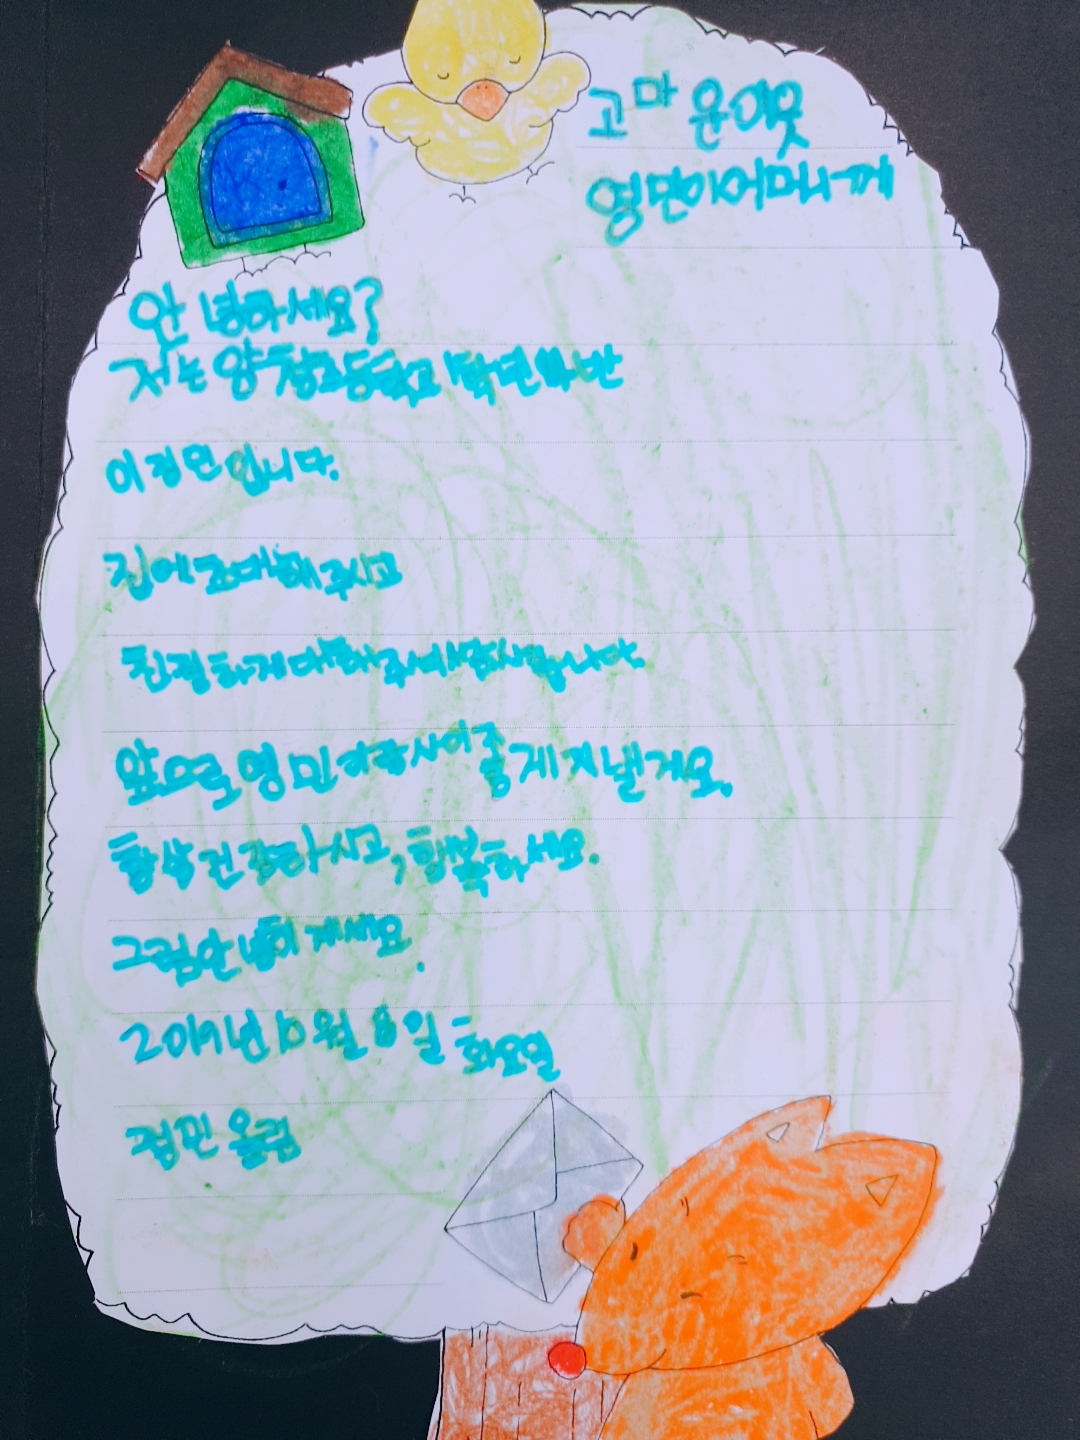 고마운이웃
영민이어머니께
안녕하세요?
저는 양청초등학교 1학년 반
이정민입니다.
집에초대해주시고
친절하게대해주셔서감사합니다.
앞으로영민이랑사이좋게지낼게요.
항상건강하시고,행복하세요.
그럼안녕히계세요.
2019년10월8일화요일
정민올림